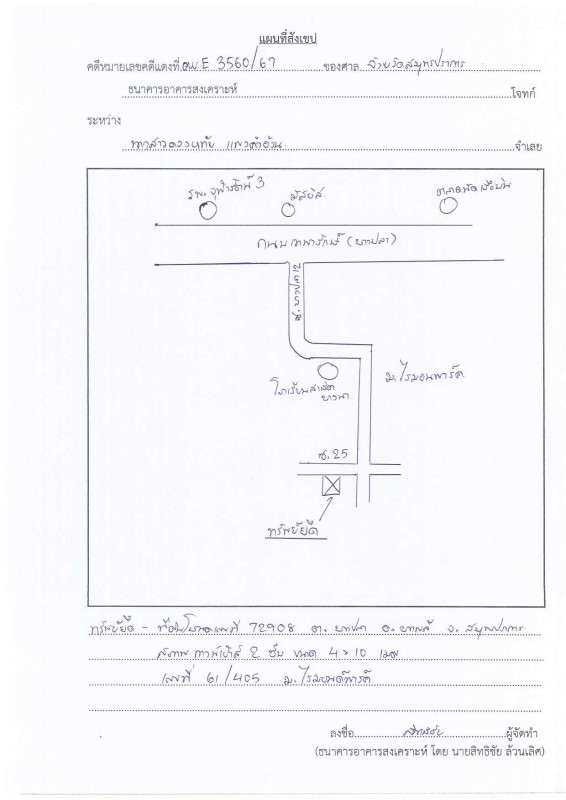 แผนที่สังเขป
คดีหมายเลขคดีแดงที่ ผบ E 3560/67 ของศาล จังหวัดสมุทรปราการ
ธนาคารอาคารสงเคราะห์ โจทก์
ระหว่าง
จำเลย
รพ. จุฬารัตน์ 3
มัสยิด
ถนนเทพารักษ์ (บางปลา)
ซ. บางปลา 12
ม. ไรมอนพาร์ค
โรงเรียนสาธิต
บางนา
ซ. 25
ทรัพย์ยึด
ทรัพย์ยึด - ที่ดินโฉนดเลขที่ 72908 ต. บางปลา อ. บางพลี จ. สมุทรปราการ
ทาวน์เฮ้าส์ 2 ชั้น ขนาด 4 x 10 เมตร
เลขที่ 61/405 ม. ไรมอนด์พาร์ค
ลงชื่อ ผู้จัดทำ
(ธนาคารอาคารสงเคราะห์ โดย นายสิทธิชัย ล้วนเลิศ)